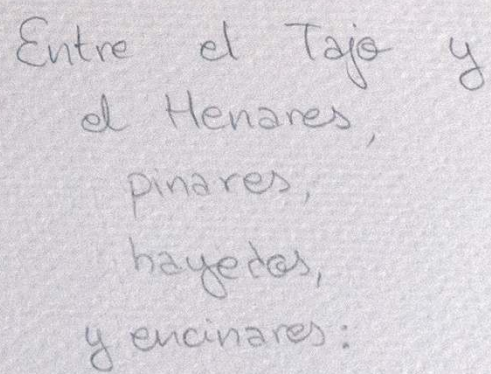 Entre el Tajo y
el Henares,
pinares,
hayedos,
y encinares: